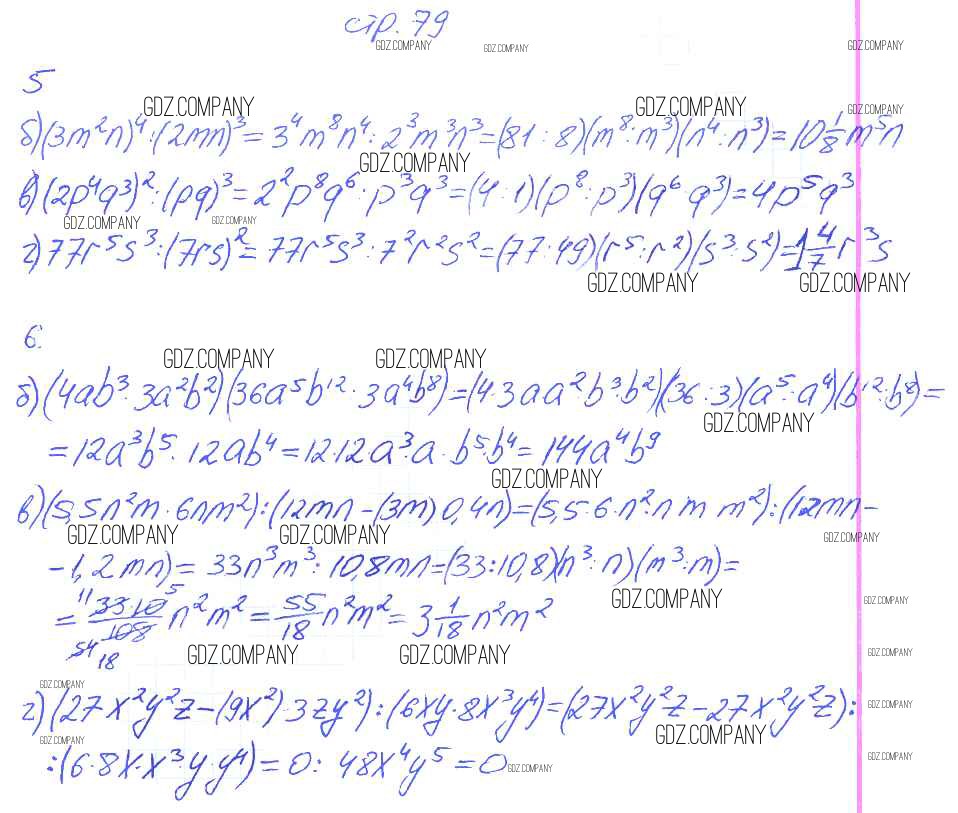 стр. 79
GDZ.COMPANY GDZ.COMPANY GDZ.COMPANY
5
GDZ.COMPANY GDZ.COMPANY GDZ.COMPANY
б) (3m²n)⁴ : (2mn)³ = 3⁴m⁸n⁴ : 2³m³n³ = (81 : 8)(m⁸ : m³)(n⁴ : n³) = 10 1/8 m⁵n
GDZ.COMPANY
в) (2p⁴q³)² : (pq)³ = 2²p⁸q⁶ : p³q³ = (4 : 1)(p⁸ : p³)(q⁶ : q³) = 4p⁵q³
GDZ.COMPANY GDZ.COMPANY
г) 77r⁵s³ : (7rs)² = 77r⁵s³ : 7²r²s² = (77 : 49)(r⁵ : r²)(s³ : s²) = 1 4/7 r³s
GDZ.COMPANY GDZ.COMPANY
6.
GDZ.COMPANY GDZ.COMPANY
б) (4ab³ · 3a²b²)(36a⁵b¹² : 3a⁴b⁸) = (4 · 3aa² · b³ · b²)(36 : 3)(a⁵ : a⁴)(b¹² : b⁸) =
GDZ.COMPANY
= 12a³b⁵ · 12ab⁴ = 12 · 12a³ · a · b⁵ · b⁴ = 144a⁴b⁹
GDZ.COMPANY
в) (5,5n²m · 6nm²) : (12mn - (3m) 0,4n) = (5,5 · 6 · n² · n m m²) : (12mn -
GDZ.COMPANY GDZ.COMPANY GDZ.COMPANY
- 1,2mn) = 33n³m³ : 10,8mn = (33 : 10,8)(n³ : n)(m³ : m) =
GDZ.COMPANY GDZ.COMPANY
11 5
= 33·10/108 n²m² = 55/18 n²m² = 3 1/18 n²m²
54 18
GDZ.COMPANY GDZ.COMPANY GDZ.COMPANY
GDZ.COMPANY
г) (27x²y²z - (9x²) · 3zy²) : (6xy · 8x³y⁴) = (27x²y²z - 27x²y²z) :
GDZ.COMPANY GDZ.COMPANY GDZ.COMPANY
: (6 · 8x · x³y · y⁴) = 0 : 48x⁴y⁵ = 0
GDZ.COMPANY GDZ.COMPANY